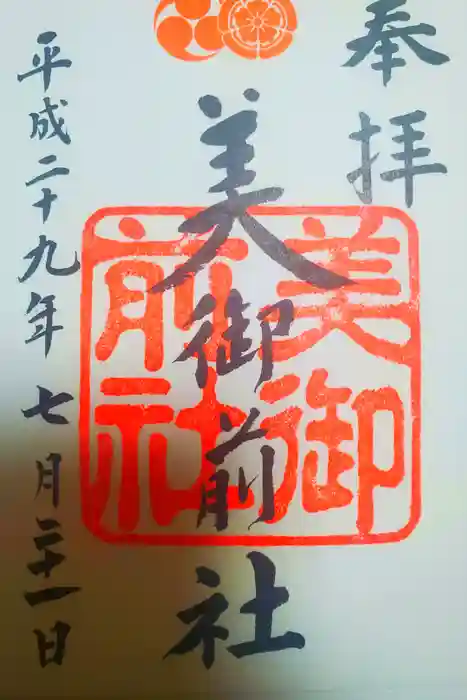 奉拝
美御前社
美御
前社
平成二十九年七月二十一日